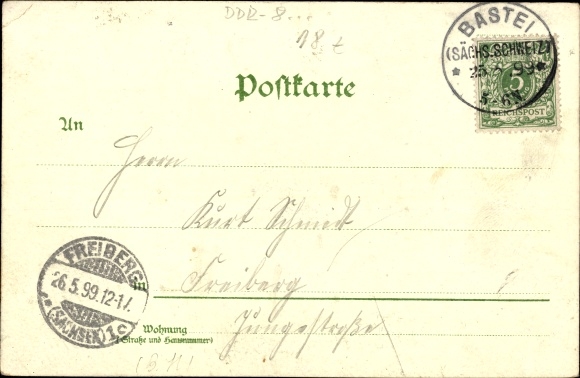 DDR-8...
18.-
BASTEI
(SÄCHS. SCHWEIZ)
25.5.99
5-6N.
5
REICHSPOST
Postkarte
An
Herrn
Kurt Schmidt
Freiberg
FREIBERG
26.5.99.12-1N.
(SACHSEN) 1c
Jungestraße
Wohnung
(Straße und Hausnummer)